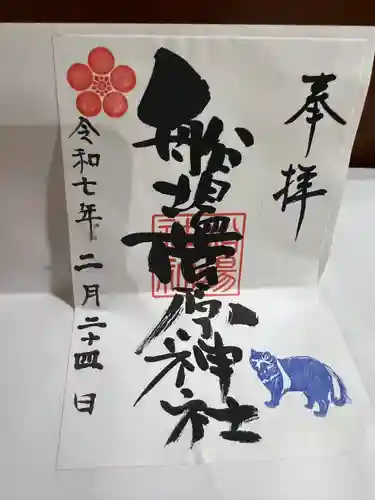 奉拝
船場菅原神社
令和七年二月二十四日